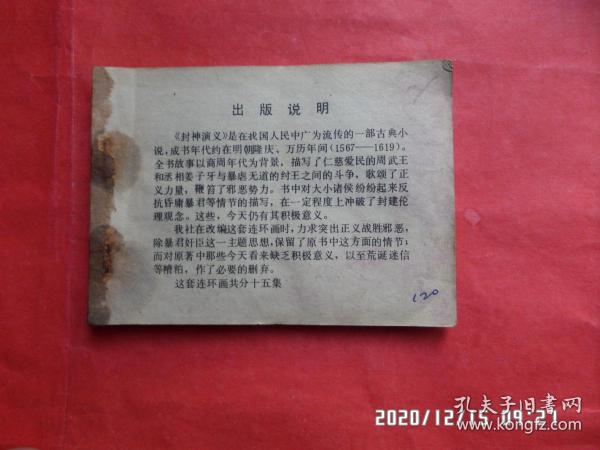 出版说明
《封神演义》是在我国人民中广为流传的一部古典小
说，成书年代约在明朝隆庆、万历年间（1567——1619）。
全书故事以商周年代为背景，描写了仁慈爱民的周武王
和丞相姜子牙与暴虐无道的纣王之间的斗争，歌颂了正
义力量，鞭笞了邪恶势力。书中对大小诸侯纷纷起来反
抗昏庸暴君等情节的描写，在一定程度上冲破了封建伦
理观念。这些，今天仍有其积极意义。
我社在改编这套连环画时，力求突出正义战胜邪恶，
除暴君奸臣这一主题思想，保留了原书中这方面的情节；
而对原著中那些今天看来缺乏积极意义，以至荒诞迷信
等糟粕，作了必要的删弃。
这套连环画共分十五集
120
2020/12/15 09:27
孔夫子旧書网
www.kongfz.com